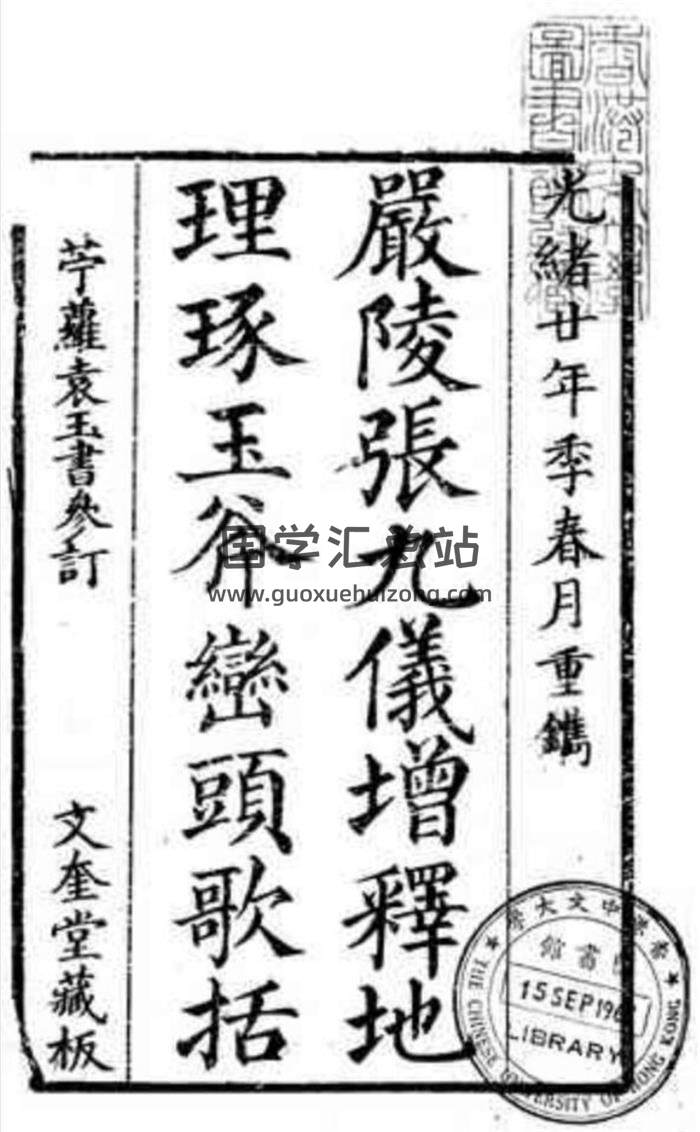 光緒廿年季春月重鐫
嚴陵張九儀增釋地
理琢玉斧巒頭歌括
苧蘿袁玉書參訂
文奎堂藏板
国学汇总站
www.guoxuehuizong.com
香港中文大學
圖書館
15 SEP 196
LIBRARY
THE CHINESE UNIVERSITY OF HONG KONG